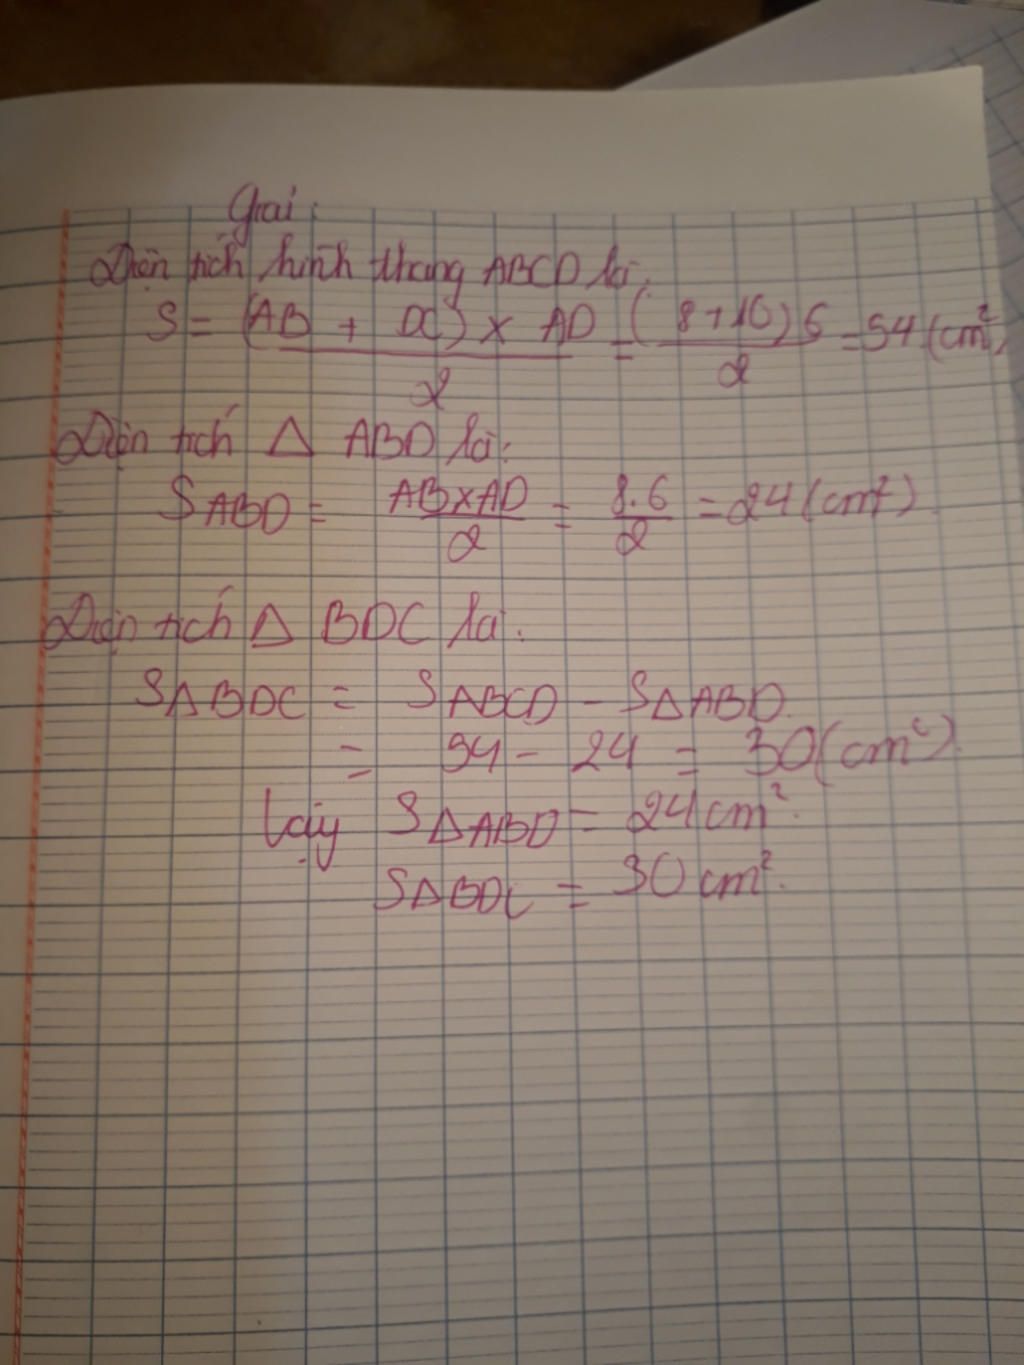 Giải:
Diện tích hình thang ABCD là:
S = (AB + DC) × AD / 2 = (8+10)6 / 2 = 54 (cm²)
Diện tích Δ ABD là:
SABD = AB×AD / 2 = 8.6 / 2 = 24 (cm²)
Diện tích Δ BDC là:
SΔBDC = SABCD - SΔABD
= 54 - 24 = 30 (cm²)
Vậy SΔABD = 24 cm².
SΔBDC = 30 cm².